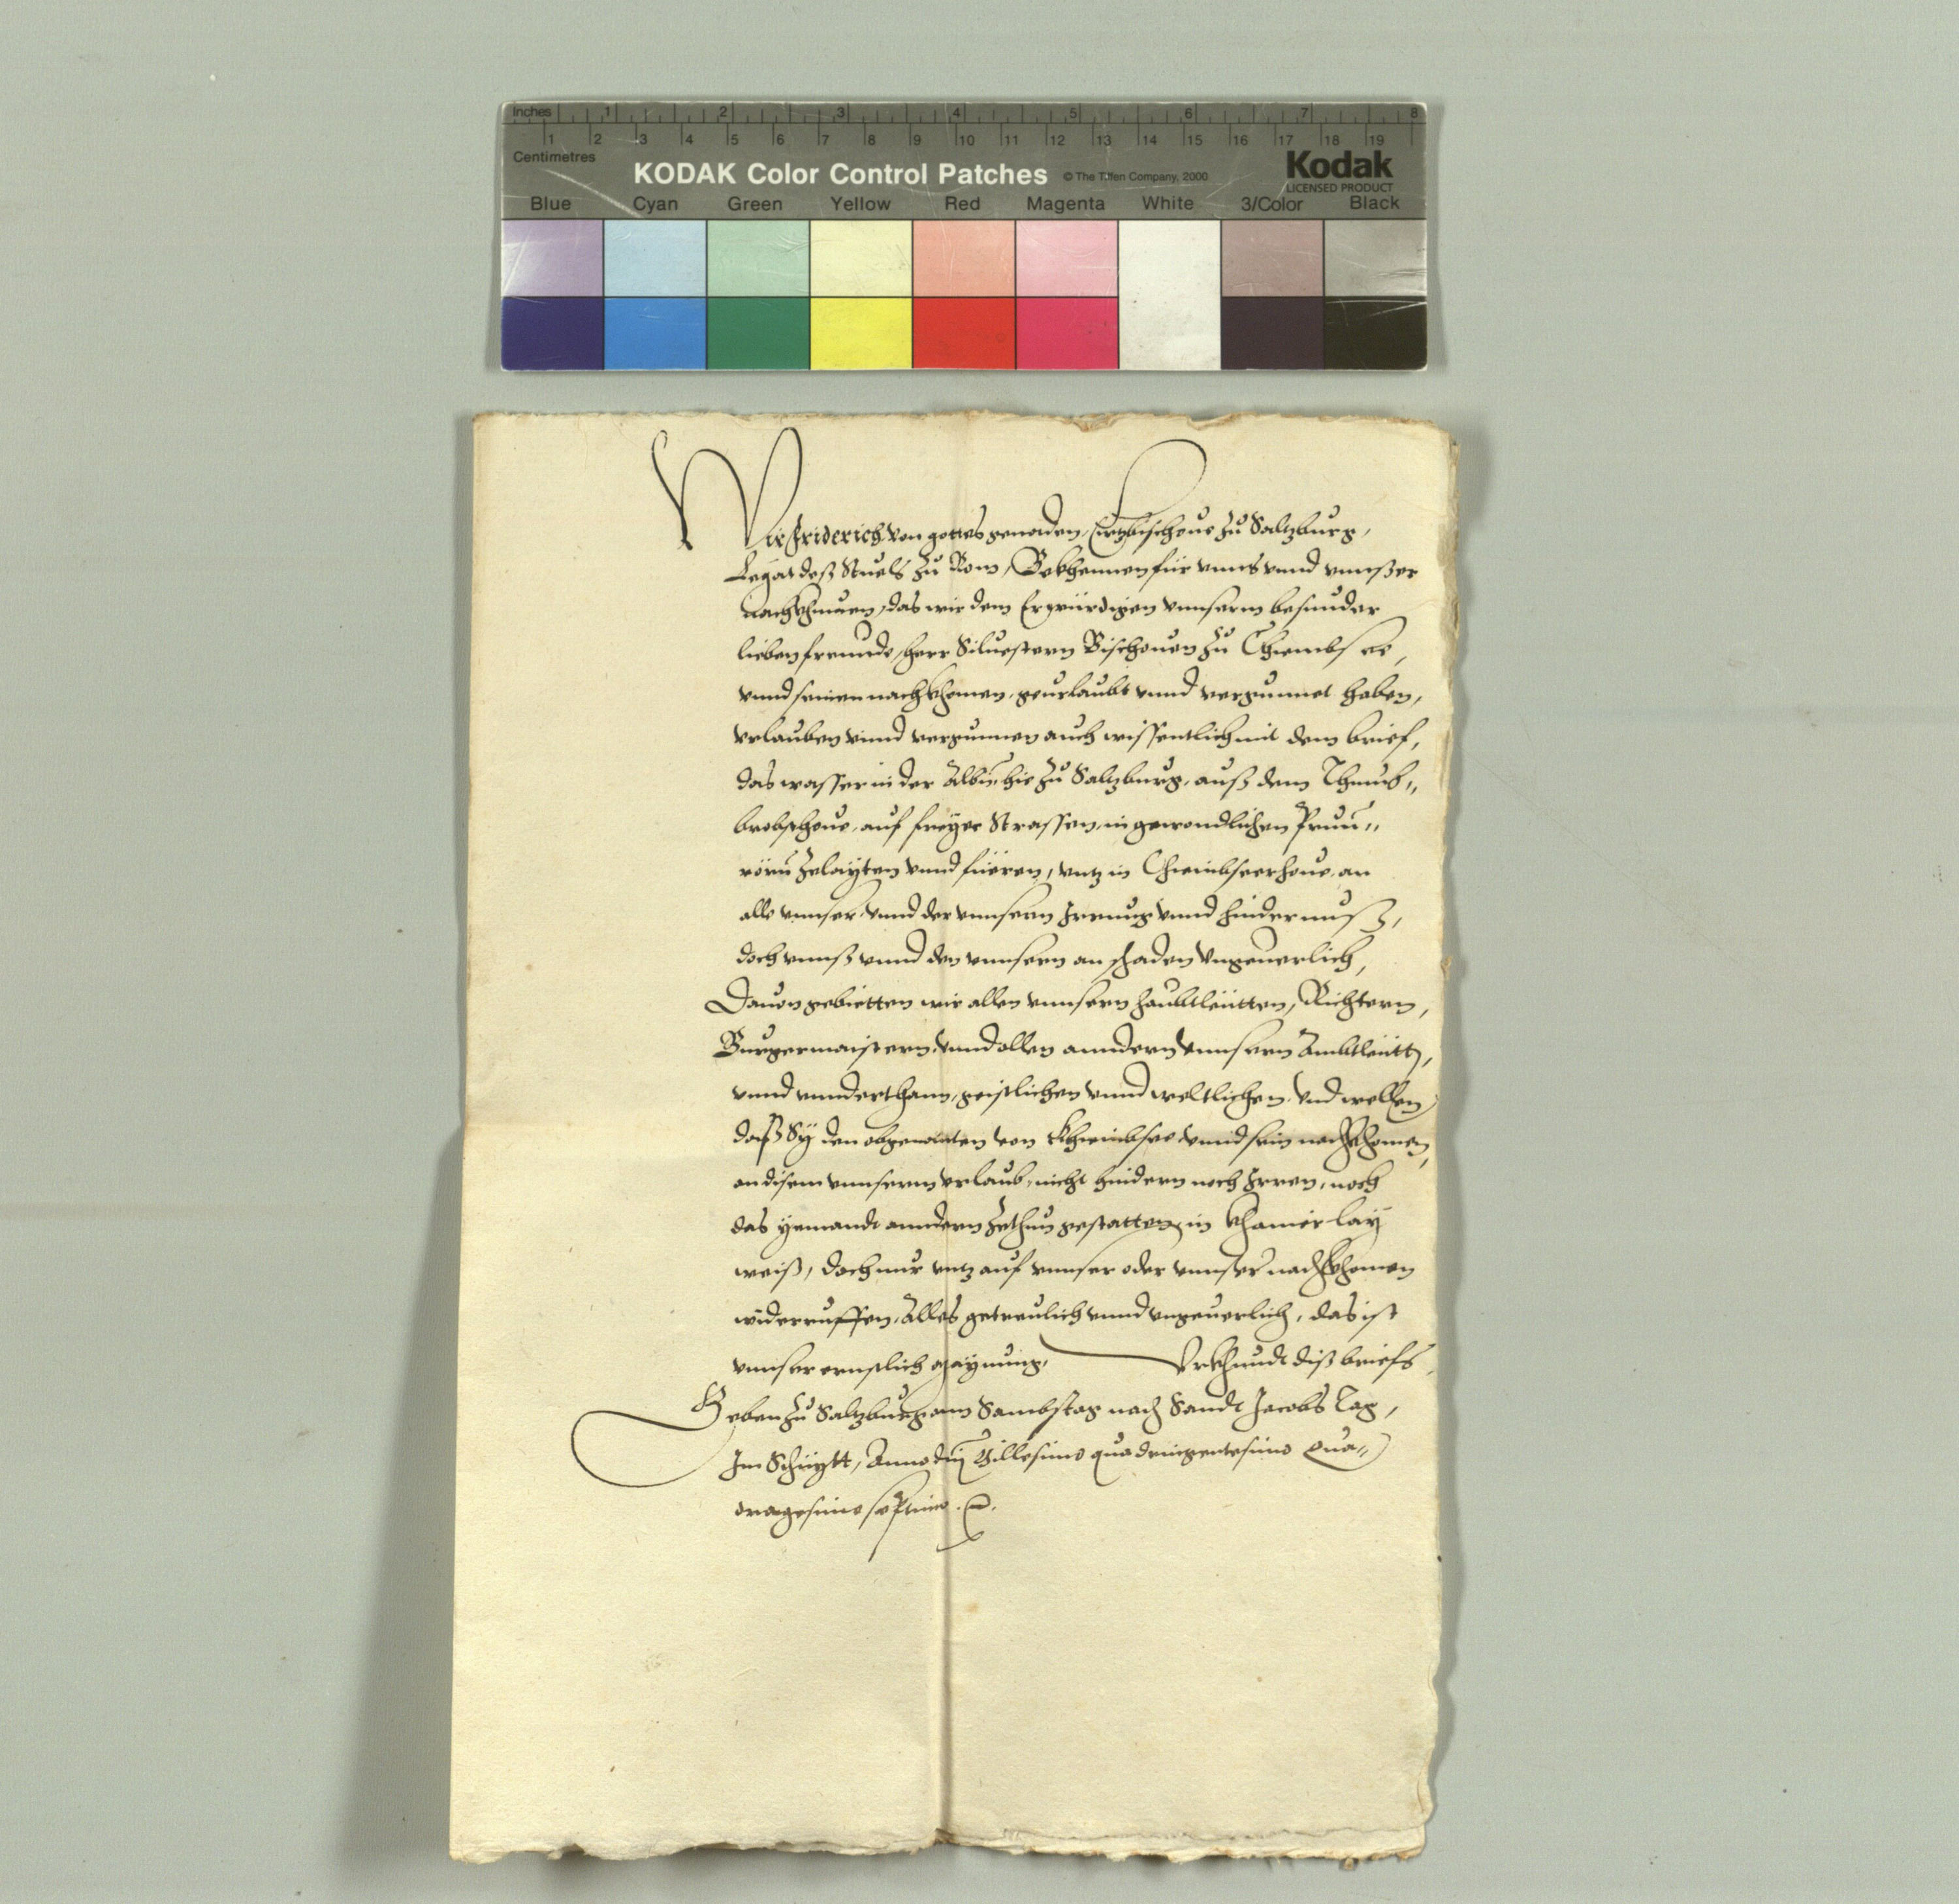 Inches 1 2 3 4 5 6 7 8
1 2 3 4 5 6 7 8 9 10 11 12 13 14 15 16 17 18 19
Centimetres
KODAK Color Control Patches © The Tiffen Company, 2000 Kodak
LICENSED PRODUCT
Blue Cyan Green Yellow Red Magenta White 3/Color Black
Wir Friderich von gottes genaden, Ertzbischoue zu Saltzburg,
Legat deß Stuels zu Rom, Bekhennen für vnns vnnd vnnßer
nachkhumen, das wir dem Erwürdigen vnnserm besunder
lieben freunde, herr Siluestern Bischouen zu Chiembsee,
vnnd seinen nachkhomen, geurlaubt vnnd vergunnet haben,
vrlauben vnnd vergunnen auch wissentlich mit dem brief,
das wasser in der Albm hie zu Saltzburg, auß dem Thumb„
brobsthoue, auf freyer Strassen, in gewondlichen Prun„
rörn zelayten vnnd füeren, vntz in Chiembseerhoue, an
alle vnnser, vnnd der vnnsern Irrung vnnd hindernuß,
doch vnnß vnnd den vnnsern an schaden vngeuerlich,
Dauon gebietten wir allen vnnsern haubtleütten, Richtern,
Burgermaistern, vnnd allen anndern vnnsern Ambtleütt,
vnnd vnnderthann, geistlichen vnnd weltlichen, vnd wellen
daß Sy den obgenanten von Khiembsee vnnd sein nachkhomen,
an disem vnnserm vrlaub, nicht hindern noch Irren, noch
das yemandt anndern zethun gestatten, in khainerlay
weiß, doch nur vntz auf vnnser oder vnnser nachkhomen
widerruffen, Alles getreulich vnnd vngeuerlich, das ist
vnnser ernstlich maynung, Vrkhundt diß briefs
Geben zu Saltzburg am Sambstag nach Sandt Jacobs Tag,
Im Schnytt, Anno dni Millesimo quadringentesimo Qua„
dragesimo septimo.